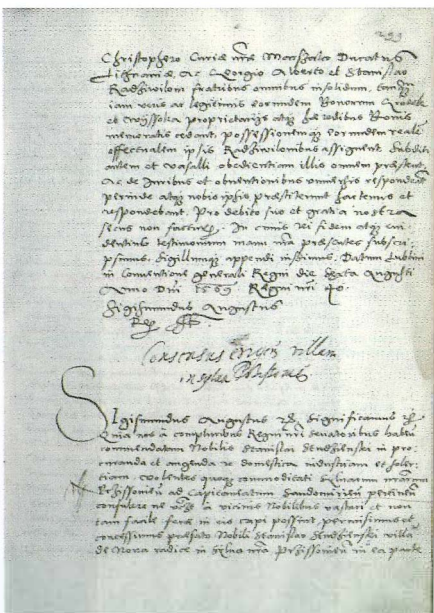 299
Christophero Curiae nrae Marschalco Ducatus
Lithuaniae, Ac Georgio Alberto et Stanislao
Radziwilom fratribus omnibus insolidum, tanqz
iam veris ac legitimis eorundem Bonorum
et proprietarijs atqz haeredibus Bonis
memoratis cedant, possessionemqz eorundem realem
effectualem ipsis Radziwilonibus assignent Subditi
autem et vasalli obedientiam illis omnem praestent
Ac de Juribus et obventionibus universis respondeant
perinde atqz nobis ipsis praestiterunt hactenus et
respondebant. Pro debito suo et gratia nostra
secus non facturi. In cuius rei fidem atqz evi
dentius testimonium manu nra praesentes subscri
psimus, Sigillumqz appendi iussimus. Datum Lublini
in Conventione generali Regni die sexta Augusti
Anno Dni 1569 Regni nri 40
Sigismundus Augustus
Rex
Consensus villam
in
Sigismundus Augustus etc. Significamus etc.
Quia nos a compluribus Regni nri senatoribus habentes
commendatam Nobilis Stanislai in pro
curanda et augenda re domestica industriam et soler
tiam, volentes quoqz commoditati Silvarum nrarum
ad Capitaneatum Sandomirien pertinen
consulere ne a vicinis Nobilibus vastari et non
tam facile ferae in eis capi possint, permisimus et
concessimus praefato Nobili Stanislao villam
de Nova radice in Sylva nra in ea parte